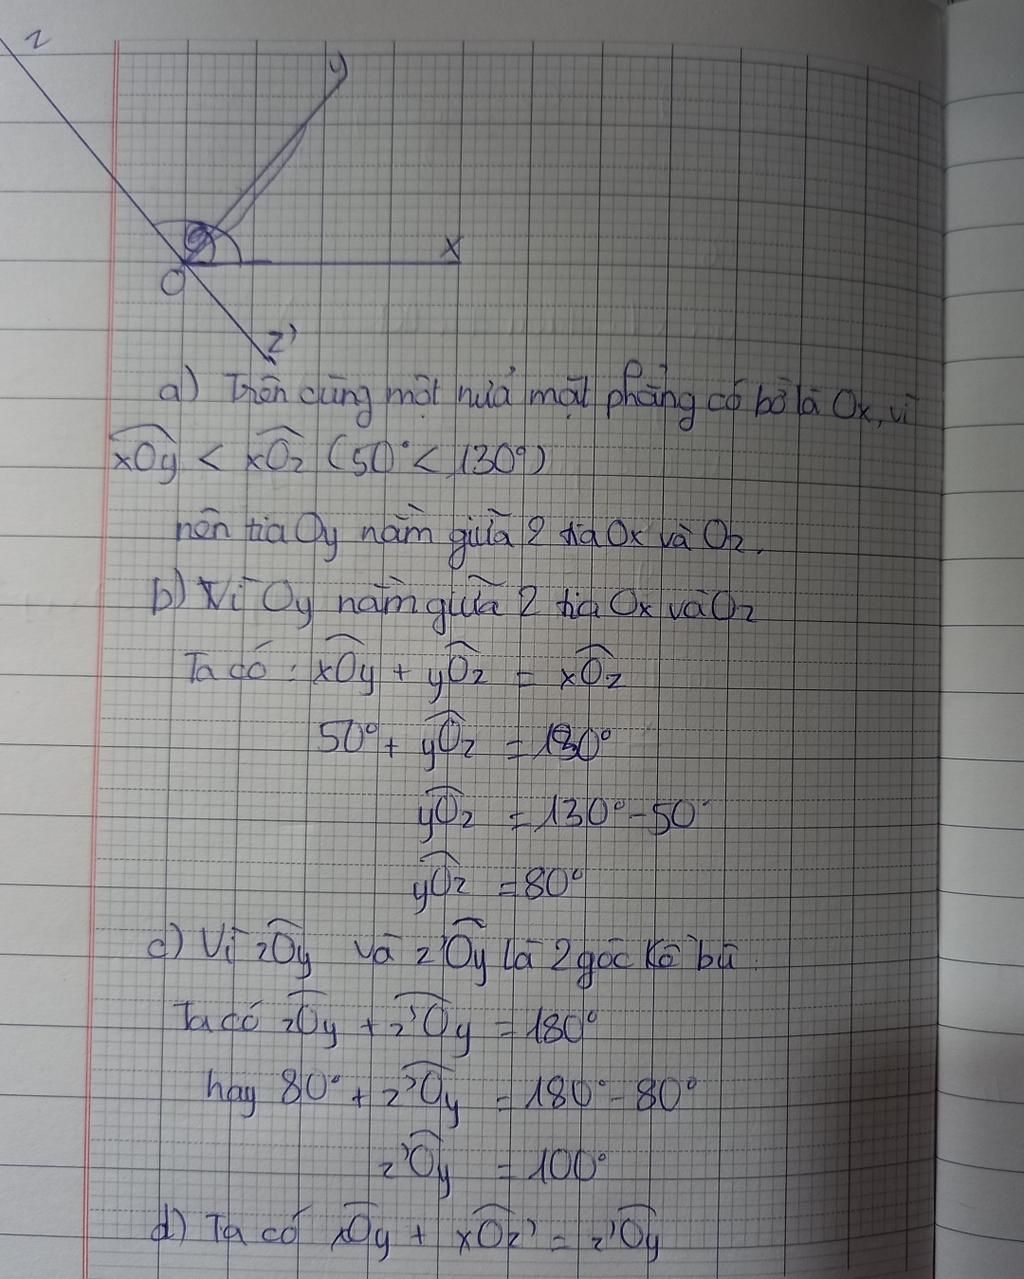 z
y
x
O
z'
a) Trên cùng một nửa mặt phẳng có bờ là Ox, vì
xOy < xOz (50° < 130°)
nên tia Oy nằm giữa 2 tia Ox và Oz.
b) Vì Oy nằm giữa 2 tia Ox và Oz
Ta có : xOy + yOz = xOz
50° + yOz = 130°
yOz = 130° - 50°
yOz = 80°
c) Vì zOy và z'Oy là 2 góc kề bù
Ta có zOy + z'Oy = 180°
hay 80° + z'Oy = 180° - 80°
z'Oy = 100°
d) Ta có xOy + xOz' = z'Oy